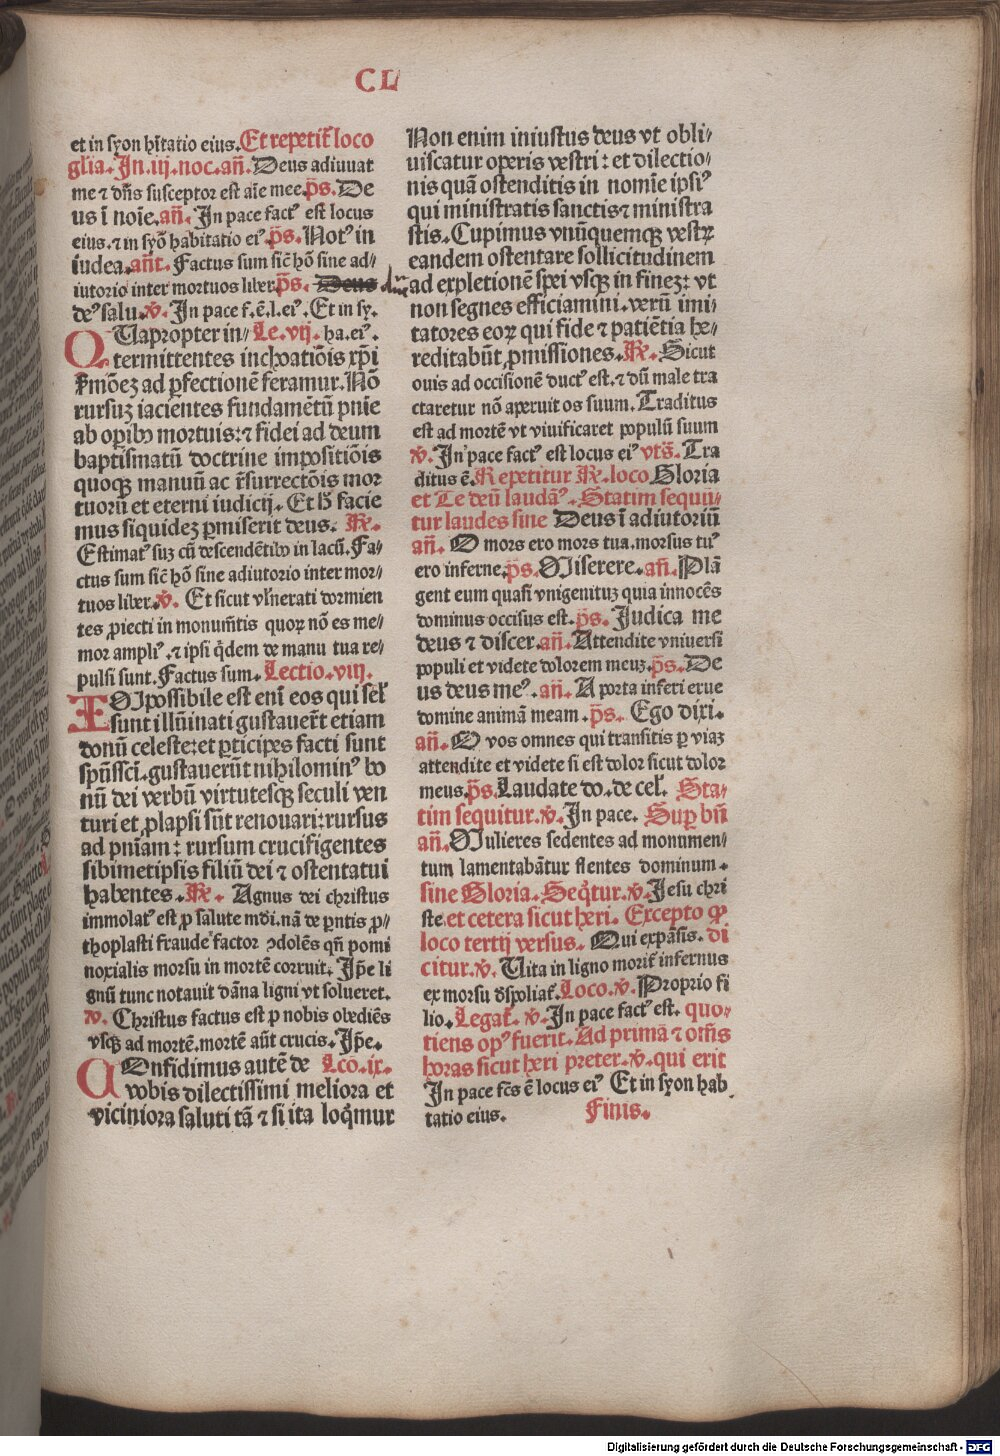 CL
et in syon hītatio eius. Et repetit̄ loco
gľia. In. iij. noc. an̄. Deus adiuuat
me ⁊ dn̄s susceptor est aīe mee. p̄s. De
us ī noīe. an̄. In pace factꝰ est locus
eius. ⁊ in syō habitatio eiꝰ. p̄s. Notꝰ in
iudea. an̄t. Factus sum sic̄ hō sine ad⸗
iutorio inter mortuos liber. p̄s. Deus
deꝰ salu. v̄. In pace f. ē. l. eiꝰ. Et in sy.
QUapropter in⸗ Le. vij. ha. eiꝰ.
termittentes inchoatiōis xp̄i
s̄mōeꝫ ad ꝑfectionē feramur. Nō
rursuꝫ iacientes fundamētū pnīe
ab oꝑibꝰ mortuis: ⁊ fidei ad deum
baptismatū doctrine impositiōis
quoqꝫ manuū ac r̄surrectōis mor
tuorū et eterni iudicij. Et h̄ facie
mus siquideꝫ ꝑmiserit deus. R̄.
Estimatꝰ suꝫ cū descendētibꝰ in lacū. Fa⸗
ctus sum sic̄ hō sine adiutorio inter mor⸗
tuos liber. v̄. Et sicut vľnerati dormien
tes ꝓiecti in monumētis quoꝝ nō es me⸗
mor ampliꝰ. ⁊ ipsi q̄dem de manu tua re⸗
pulsi sunt. Factus sum. Lectio. viij.
IMpossibile est enī eos qui seľ
sunt illūinati gustauer̄t etiam
donū celeste: et ꝑticipes facti sunt
spūssc̄i. gustauerūt nihilominꝰ bo
nū dei verbū virtutesqꝫ seculi ven
turi et ꝓlapsi sūt renouari: rursus
ad pnīam: rursum crucifigentes
sibimetipsis filiū dei ⁊ ostentatui
habentes. R̄. Agnus dei christus
immolatꝰ est ꝓ salute mūdi. nā de pn̄tis ꝓ⸗
thoplasti fraude factor ꝯdolēs qn̄ pomi
noxialis morsu in mortē corruit. Ip̄e li
gnū tunc notauit dāna ligni vt solueret.
v̄. Christus factus est ꝓ nobis obediēs
vsqꝫ ad mortē. mortē aūt crucis. Ip̄e.
COnfidimus autē de Lcō. ix.
vobis dilectissimi meliora et
viciniora saluti tā ⁊ si ita loq̄mur
Non enim iniustus deus vt obli⸗
uiscatur operis vestri: et dilectio⸗
nis quā ostenditis in nomīe ipsiꝰ
qui ministratis sanctis ⁊ ministra
stis. Cupimus vnūquemqꝫ vestꝝ
eandem ostentare sollicitudinem
ad expletionē spei vsqꝫ in fineꝫ: vt
non segnes efficiamini. verū imi⸗
tatores eoꝝ qui fide ⁊ patiētia he⸗
reditabūt ꝓmissiones. R̄. Sicut
ouis ad occisionē ductꝰ est. ⁊ dū male tra
ctaretur nō aperuit os suum. Traditus
est ad mortē vt viuificaret populū suum
v̄. In pace factꝰ est locus eiꝰ vts̄. Tra
ditus ē. Repetitur R̄. loco Gloria
et Te deū laudāꝰ. Statim sequū⸗
tur laudes sine Deus ī adiutoriū
an̄. O mors ero mors tua. morsus tuꝰ
ero inferne. p̄s. Miserere. an̄. Plā
gent eum quasi vnigenituꝫ quia innocēs
dominus occisus est. p̄s. Judica me
deus ⁊ discer. an̄. Attendite vniuersi
populi et videte dolorem meuꝫ. p̄s. De
us deus meꝰ. an̄. A porta inferi erue
domine animā meam. p̄s. Ego dixi.
an̄. O vos omnes qui transitis ꝑ viaꝫ
attendite et videte si est dolor sicut dolor
meus. p̄s. Laudate do. de ceľ. Sta⸗
tim sequitur. v̄. In pace. Suꝑ bn̄
an̄. Mulieres sedentes ad monumen⸗
tum lamentabātur flentes dominum.
sine Gloria. Seq̄tur. v̄. Jesu chri
ste. et cetera sicut heri. Excepto ꝙ
loco tertij versus. Qui expāsis. di
citur. v̄. Uita in ligno morit̄ infernus
ex morsu d̄spoliat̄. Loco. v̄. Proprio fi
lio. Legat̄. v̄. In pace factꝰ est. quo⸗
tiens opꝰ fuerit. Ad primā ⁊ om̄s
horas sicut heri preter. v̄. qui erit
In pace fc̄s ē locus eiꝰ Et in syon hab
tatio eius. Finis.
Digitalisierung gefördert durch die Deutsche Forschungsgemeinschaft - DFG